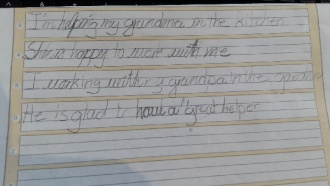 I'm helping my grandma in the kitchen
She is happy to work with me
I working with my grandpa in the garden
He is glad to have a great helper